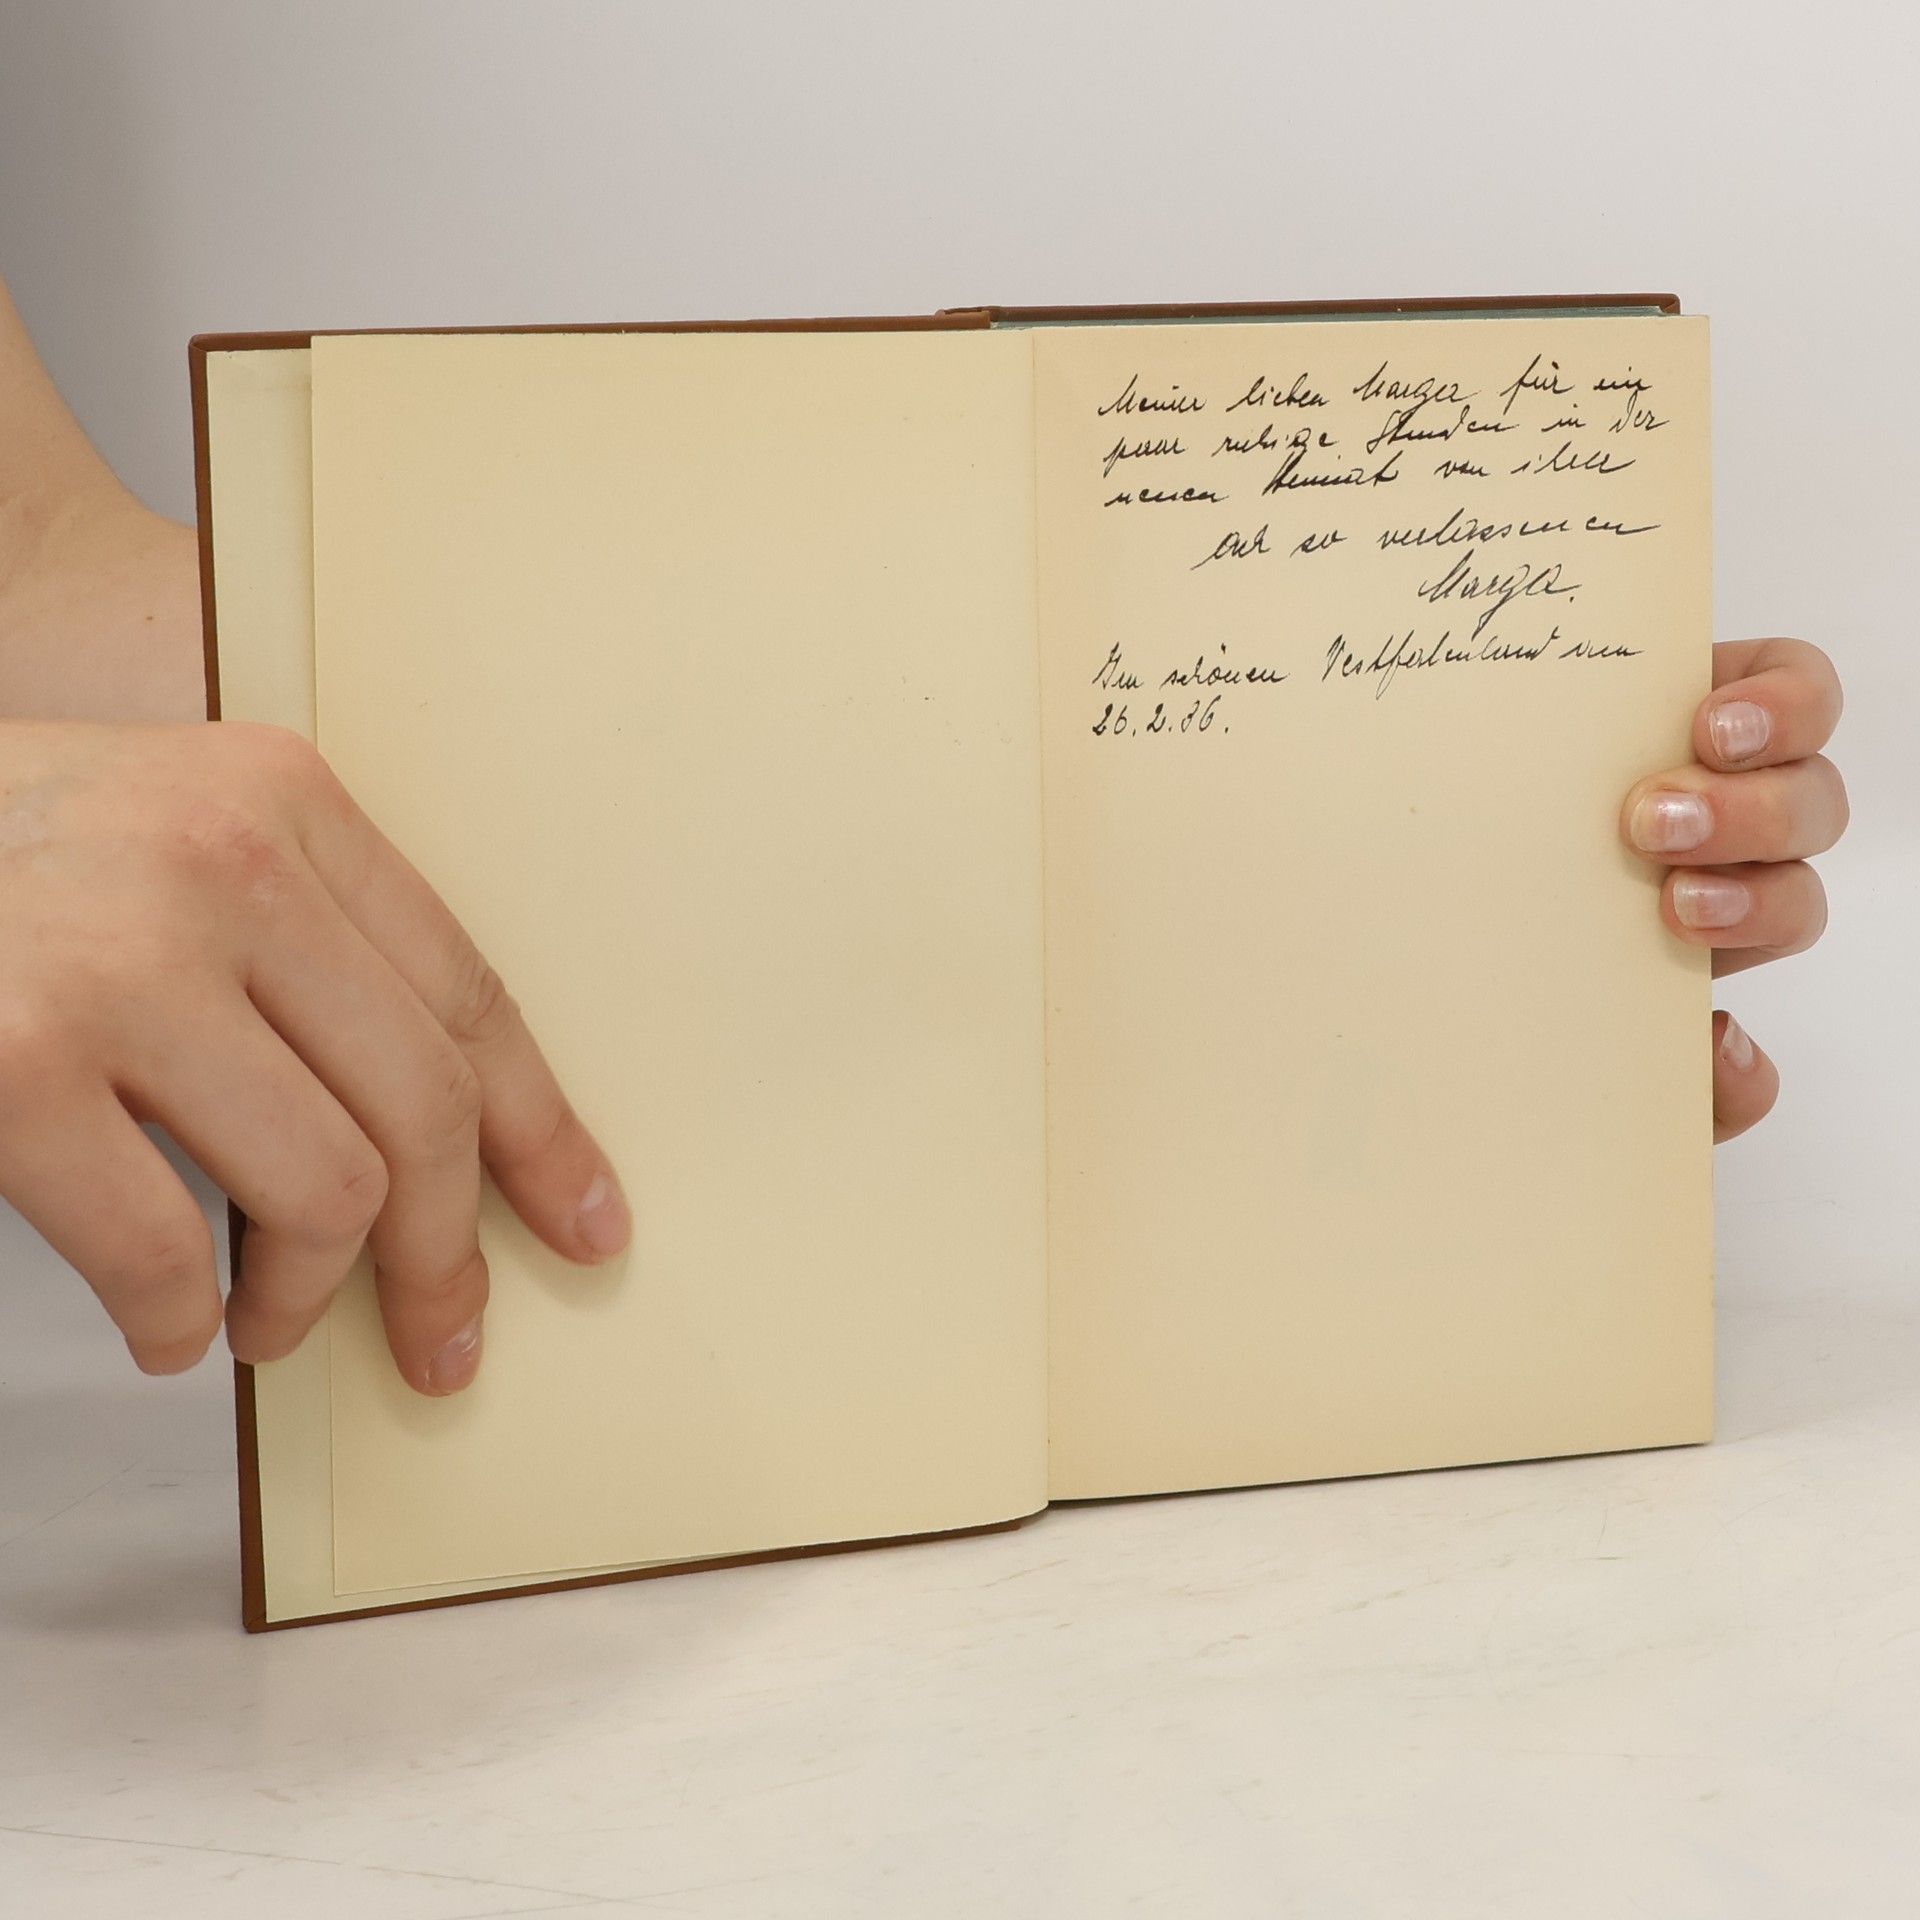 Meiner lieben Marga für ein
paar ruhige Stunden in der
neuen Heimat von ihrer
ach so verlassenen
Marga.
Im schönen Westfalenland am
26.2.36.